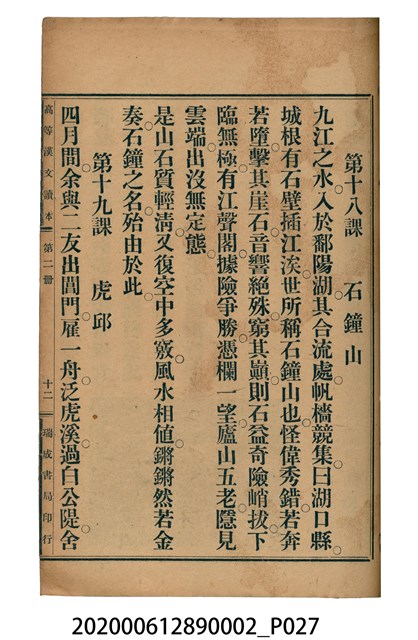 第十八課　石鐘山
九江之水入於鄱陽湖其合流處帆檣競集曰湖口縣
城根有石壁插江涘世所稱石鐘山也怪偉秀錯若奔
若墮擊其崖石音響絕殊窮其巔則石益奇險峭拔下
臨無極有江聲閣據險爭勝憑欄一望廬山五老隱見
雲端出沒無定態
是山石質輕淸又復空中多竅風水相値鏘鏘然若金
奏石鐘之名殆由於此
第十九課　虎邱
四月間余與二友出閶門雇一舟泛虎溪過白公隄舍
高等漢文讀本　第二冊　十二　瑞成書局印行
202000612890002_P027